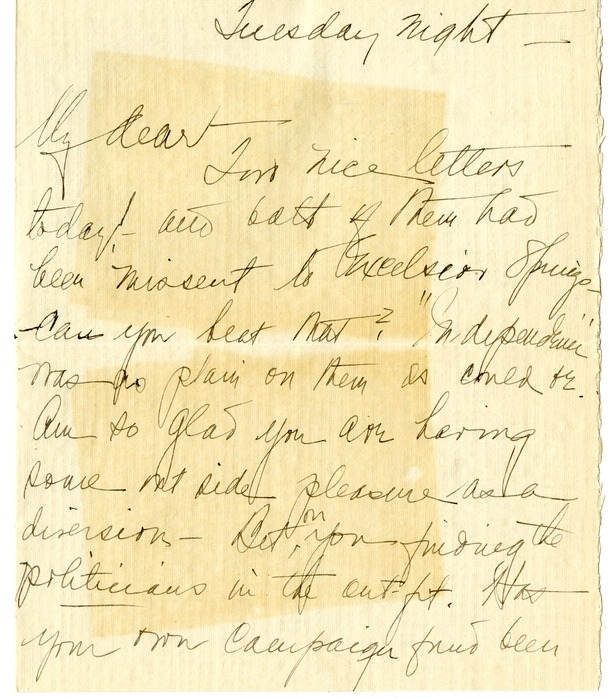 Tuesday night —
My dear —
Two nice letters
today! — and both of them had
been missent to Excelsior Springs —
Can you beat that? "Independence"
was as plain on them as could be.
Am so glad you are having
some out side pleasure as a
diversion — Bet on you finding the
politicians in the out-fit. Has
your own Campaign fund been